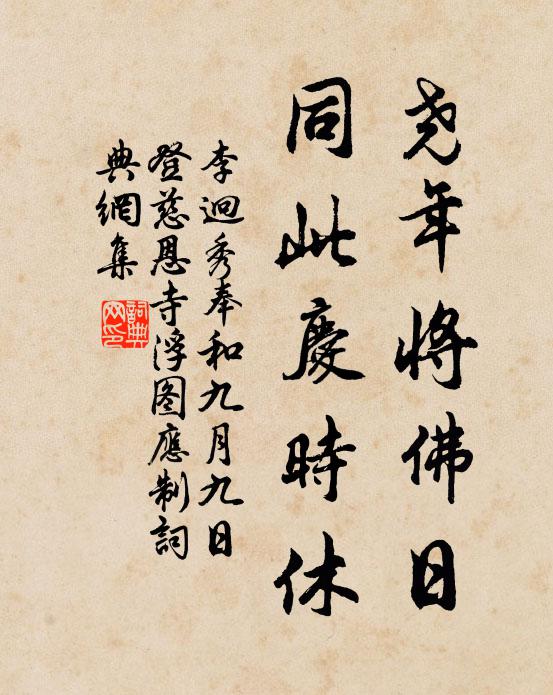 尧年将佛日
同此慶時休
李迥秀奉和九月九日
登慈恩寺浮图應制詞
典網集
詞典网印